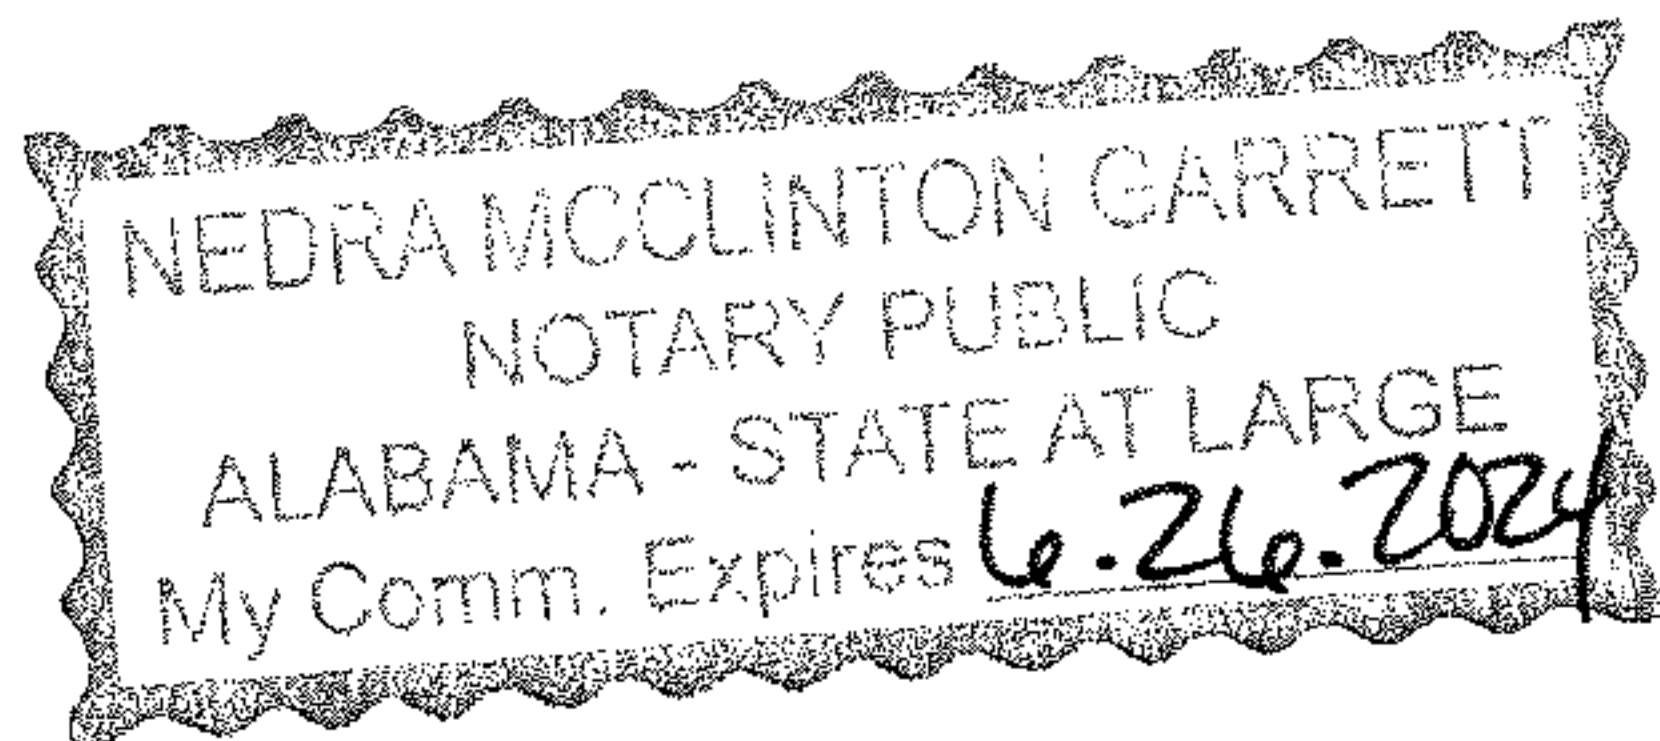 NEDRA MCCLINTON GARRETT
NOTARY PUBLIC
ALABAMA - STATE AT LARGE
My Comm. Expires 6.26.2024